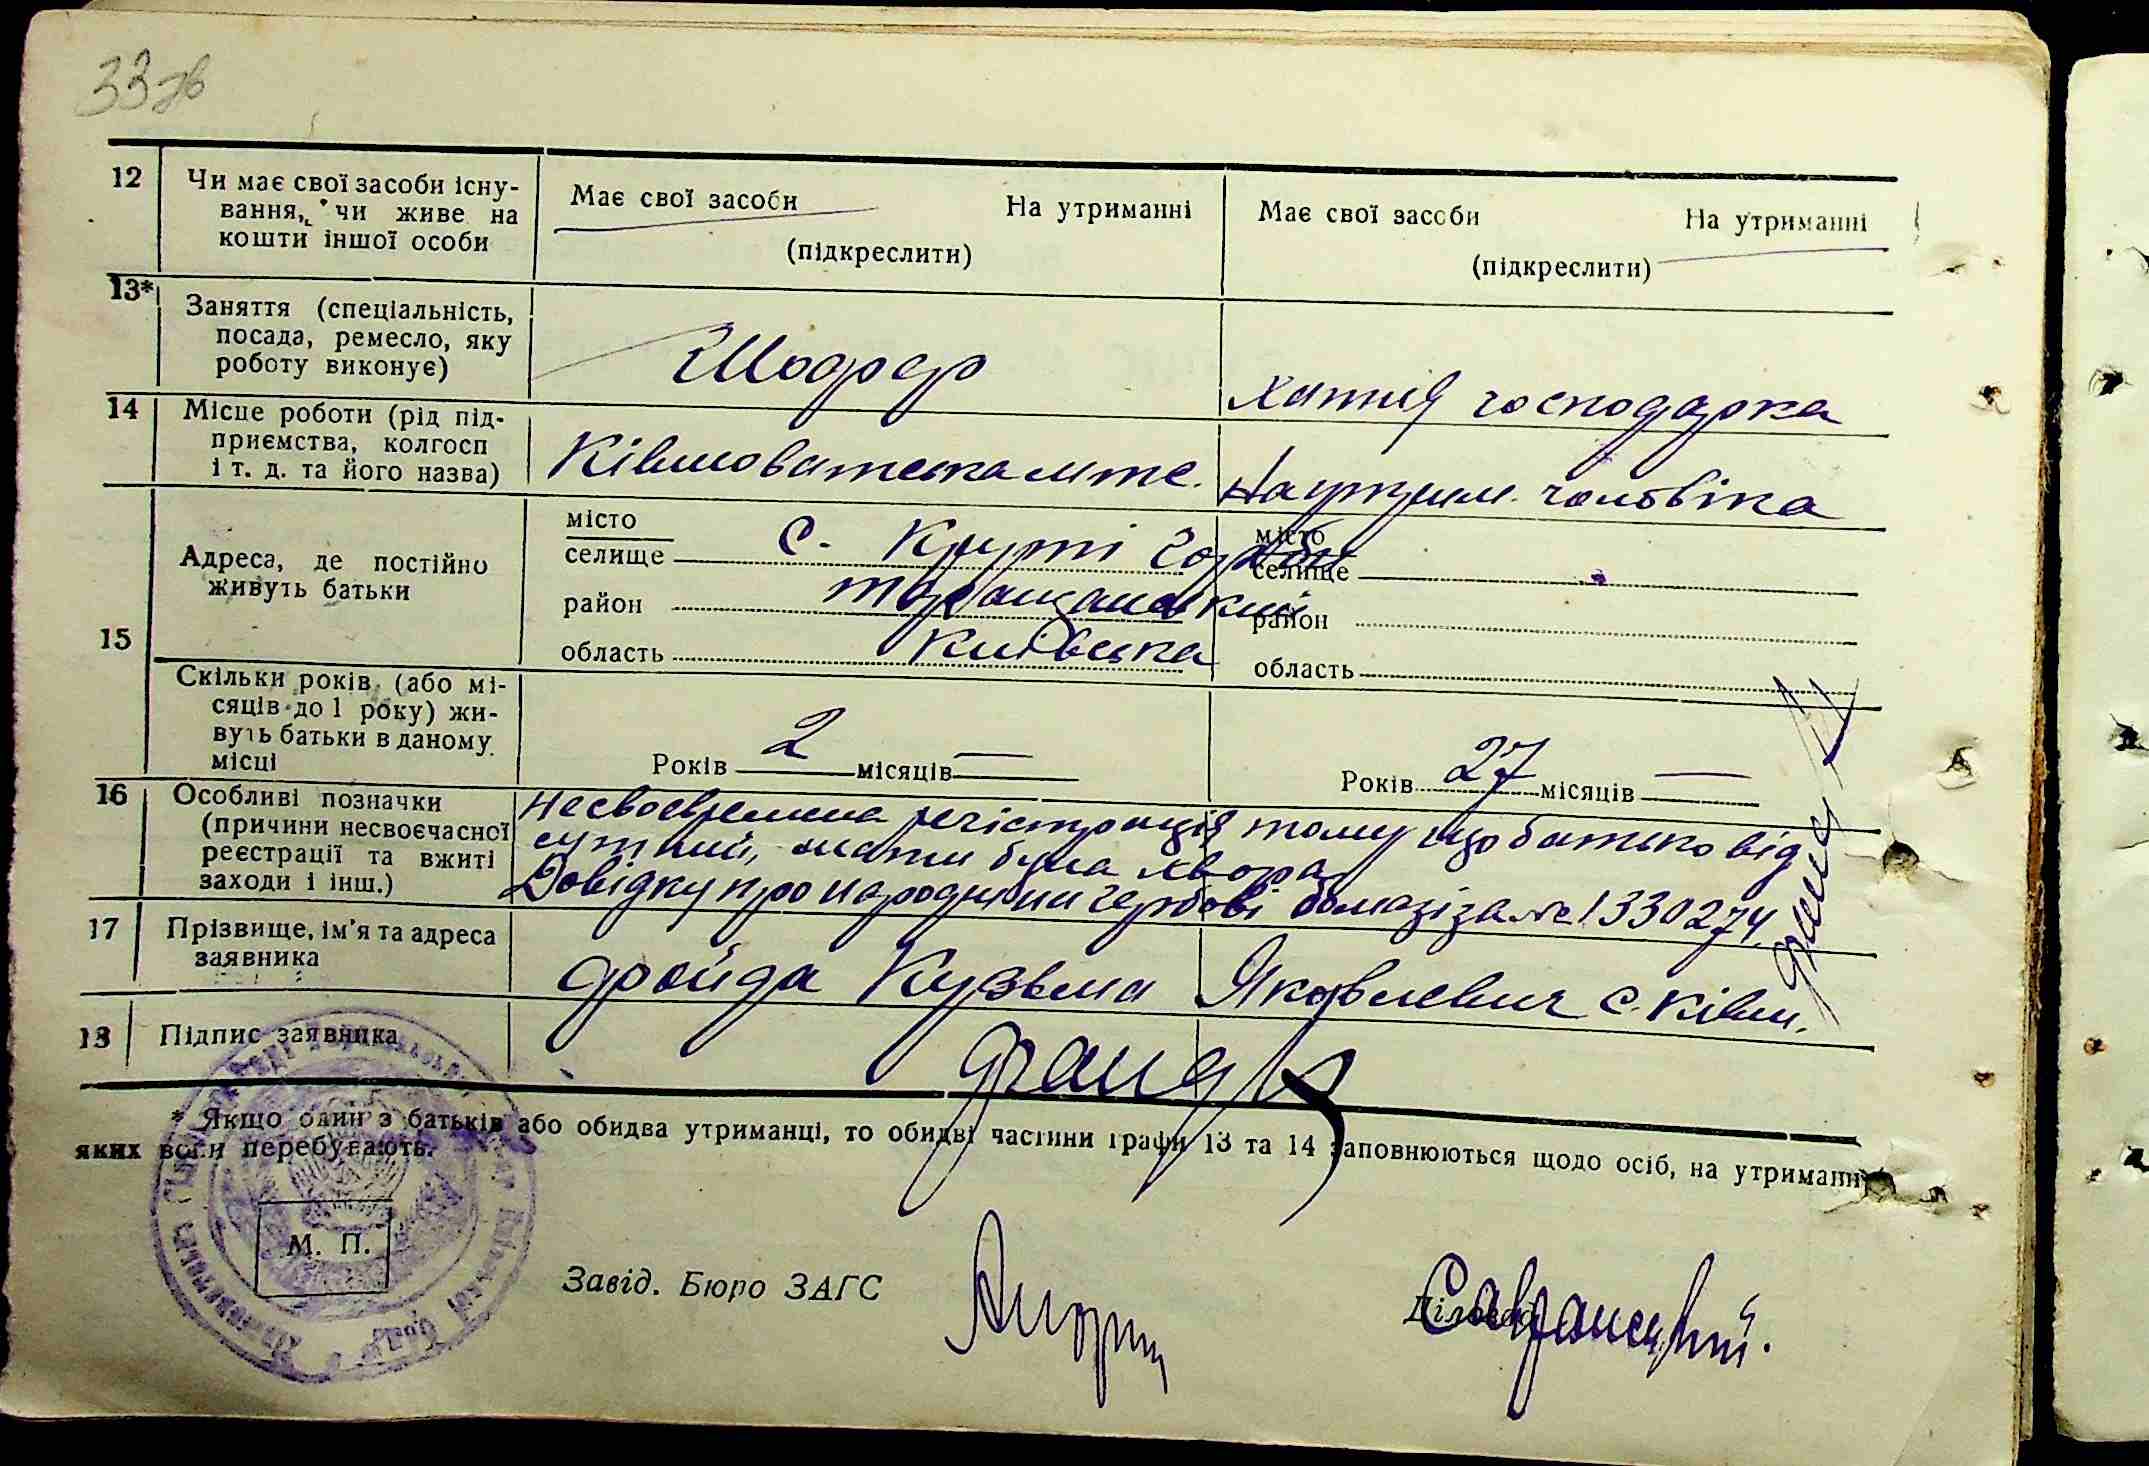 33 зв
12
Чи має свої засоби існу-
вання, чи живе на
кошти іншої особи
Має свої засоби На утриманні
(підкреслити)
Має свої засоби На утриманні
(підкреслити)
13*
Заняття (спеціальність,
посада, ремесло, яку
роботу виконує)
Шофер
хатня господарка
14
Місце роботи (рід під-
приємства, колгосп
і т. д. та його назва)
Ківшоватська мтс.
На утрим. чоловіка
15
Адреса, де постійно
живуть батьки
місто
селище с. Круті Горби
район таращанський
область Київська
місто
селище
район
область
Скільки років (або мі-
сяців до 1 року) жи-
вуть батьки в даному
місці
Років 2 місяців —
Років 27 місяців —
16
Особливі позначки
(причини несвоєчасної
реєстрації та вжиті
заходи і інш.)
несвоєвремена регістрація тому що батько від
сутній, мати була хвора
Довідку про народження на гербові бомазі за № 1330274
17
Прізвище, ім'я та адреса
заявника
Фройда Кузьма Яковлевич с. Ківш.
18
Підпис заявника
* Якщо один з батьків або обидва утриманці, то обидві частини графи 13 та 14 заповнюються щодо осіб, на утриманні
яких вони перебувають.
М. П.
Завід. Бюро ЗАГС
Діловод
Савранський.